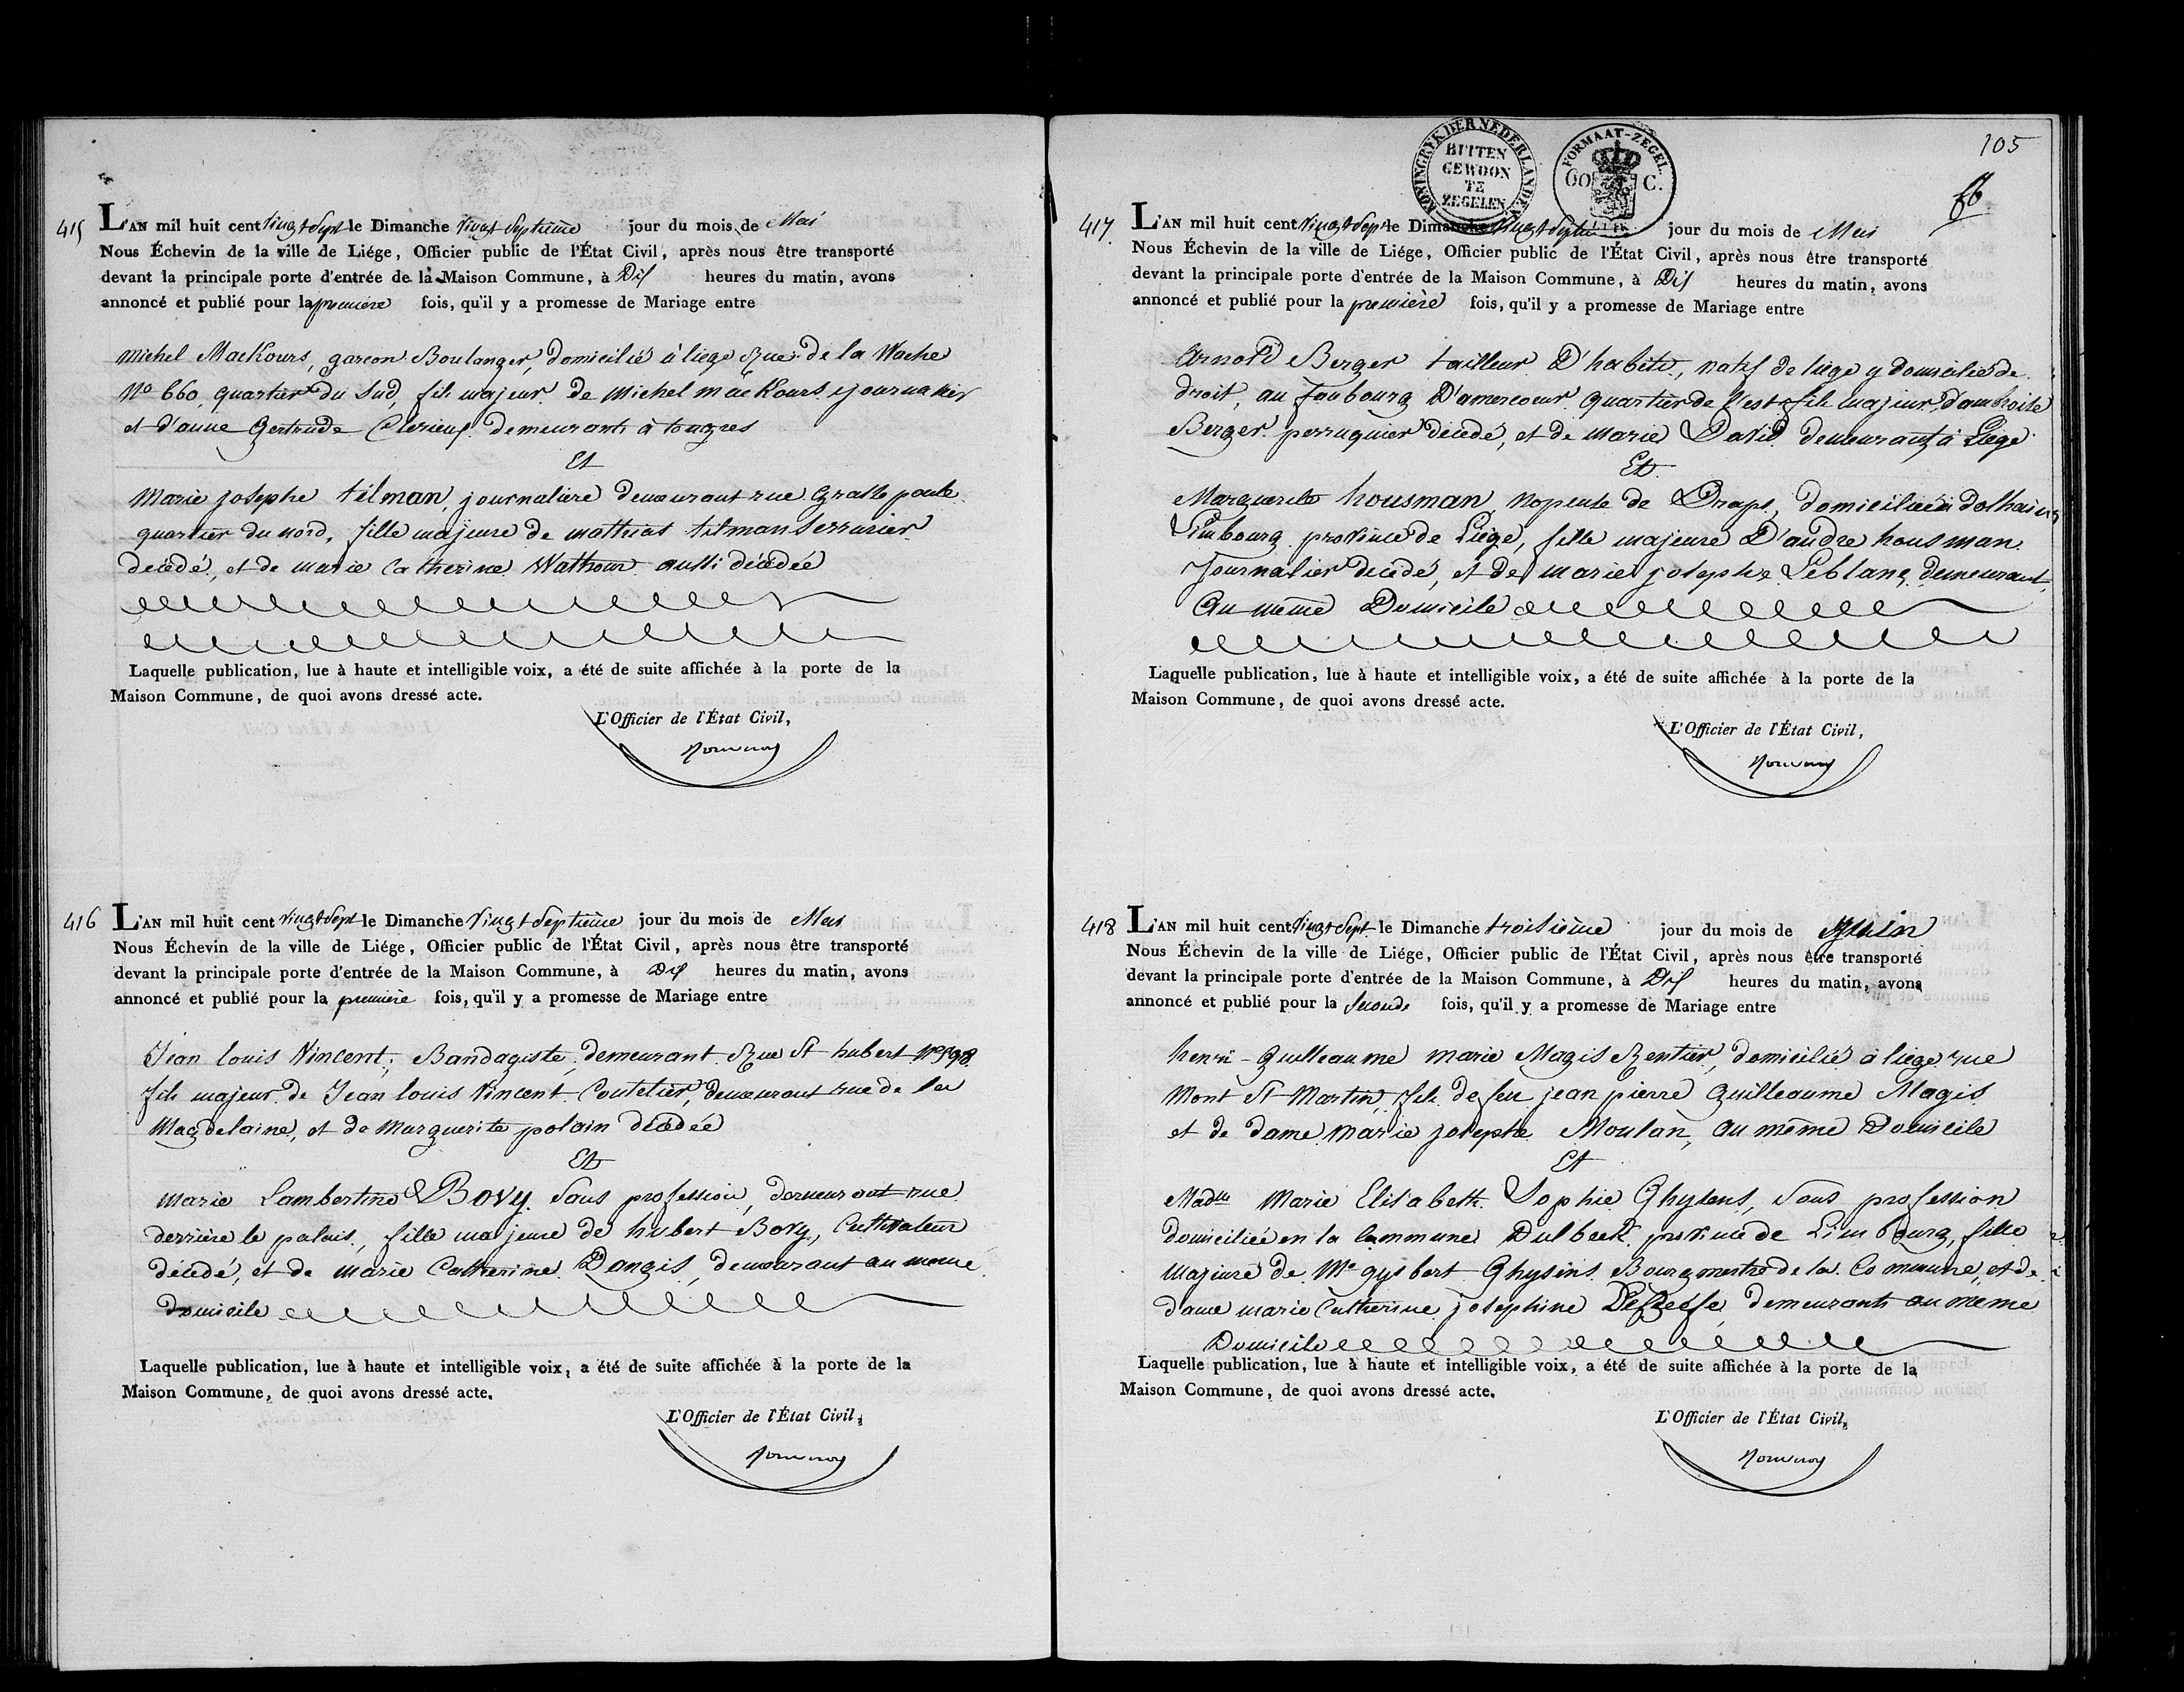 415 L'AN mil huit cent Vingt Sept le Dimanche Vingt Septieme jour du mois de Mai
Nous Échevin de la ville de Liége, Officier public de l'État Civil, après nous être transporté
devant la principale porte d'entrée de la Maison Commune, à Dix heures du matin, avons
annoncé et publié pour la premiere fois, qu'il y a promesse de Mariage entre
Michel Mackours, garcon Boulanger, domicilié à liege Rue de la Wache
No 660 quartier du Sud, fils majeur de Michel mackours journalier
et d'anne Gertrude Clerieux demeurants à tongres
Et
Marie josephe tilman, journaliere demeurant rue Grasse poule
quartier du nord, fille majeure de mathias tilman Serrurier
décédé, et de marie Catherine Wathour aussi décédée
Laquelle publication, lue à haute et intelligible voix, a été de suite affichée à la porte de la
Maison Commune, de quoi avons dressé acte.
L'Officier de l'État Civil,
416 L'AN mil huit cent vingt Sept le Dimanche Vingt Septieme jour du mois de Mai
Nous Échevin de la ville de Liége, Officier public de l'État Civil, après nous être transporté
devant la principale porte d'entrée de la Maison Commune, à Dix heures du matin, avons
annoncé et publié pour la premiere fois, qu'il y a promesse de Mariage entre
Jean louis Vincent, Bandagiste, demeurant Rue St hubert
fils majeur de Jean louis Vincent Coutelier, demeurant rue de la
Magdelaine, et de Marguerite polain décédée
Et
Marie Lambertine Bovy Sans profession, demeurant rue
derriere le palais, fille majeure de hubert Bovy, Cultivateur
décédé, et de Marie Catherine Dangis, demeurant au meme
domicile
Laquelle publication, lue à haute et intelligible voix, a été de suite affichée à la porte de la
Maison Commune, de quoi avons dressé acte.
L'Officier de l'État Civil,
KONINGRYK DER NEDERLANDEN
BUITEN
GEWOON
TE
ZEGELEN
FORMAAT-ZEGEL
60 C.
105
417 L'AN mil huit cent Vingt Sept le Dimanche Vingt Septieme jour du mois de Mai
Nous Échevin de la ville de Liége, Officier public de l'État Civil, après nous être transporté
devant la principale porte d'entrée de la Maison Commune, à Dix heures du matin, avons
annoncé et publié pour la premiere fois, qu'il y a promesse de Mariage entre
Arnold Berger tailleur D'habits, natif de liege y domicilié de
droit, au faubourg D'amercoeur quartier de l'est fils majeur d'ambroise
Berger perruquier décédé, et de Marie David demeurant à Liege
Et
Marguerite housman, nopeuse de Draps, domiciliée à dolhain
Limbourg province de Liege, fille majeure D'andre housman
Journalier décédé, et de marie josephe Leblanc, demeurant
Au même Domicile
Laquelle publication, lue à haute et intelligible voix, a été de suite affichée à la porte de la
Maison Commune, de quoi avons dressé acte.
L'Officier de l'État Civil,
418 L'AN mil huit cent Vingt Sept le Dimanche troisième jour du mois de Juin
Nous Échevin de la ville de Liége, Officier public de l'État Civil, après nous être transporté
devant la principale porte d'entrée de la Maison Commune, à Dix heures du matin, avons
annoncé et publié pour la Seconde fois, qu'il y a promesse de Mariage entre
henri - Guilleaume marie Magis Rentier, domicilié à liege rue
Mont St Martin, fils de feu jean pierre Guilleaume Magis
et de dame marie josephe Moulan, au même Domicile
Et
Madlle Marie Elisabeth Sophie Ghysens, Sans profession
domiciliée en la Commune Dulbeek province de Limbourg, fille
Majeure de Mr gysbert Ghysens Bourgmestre de la Commune, et de
dame marie Catherine josephine demeurants au meme
Domicile
Laquelle publication, lue à haute et intelligible voix, a été de suite affichée à la porte de la
Maison Commune, de quoi avons dressé acte.
L'Officier de l'État Civil,